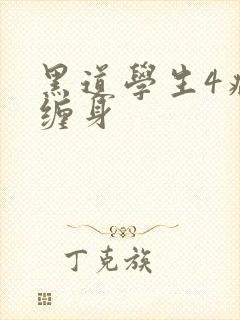 黑道學生4
缠身
丁克族